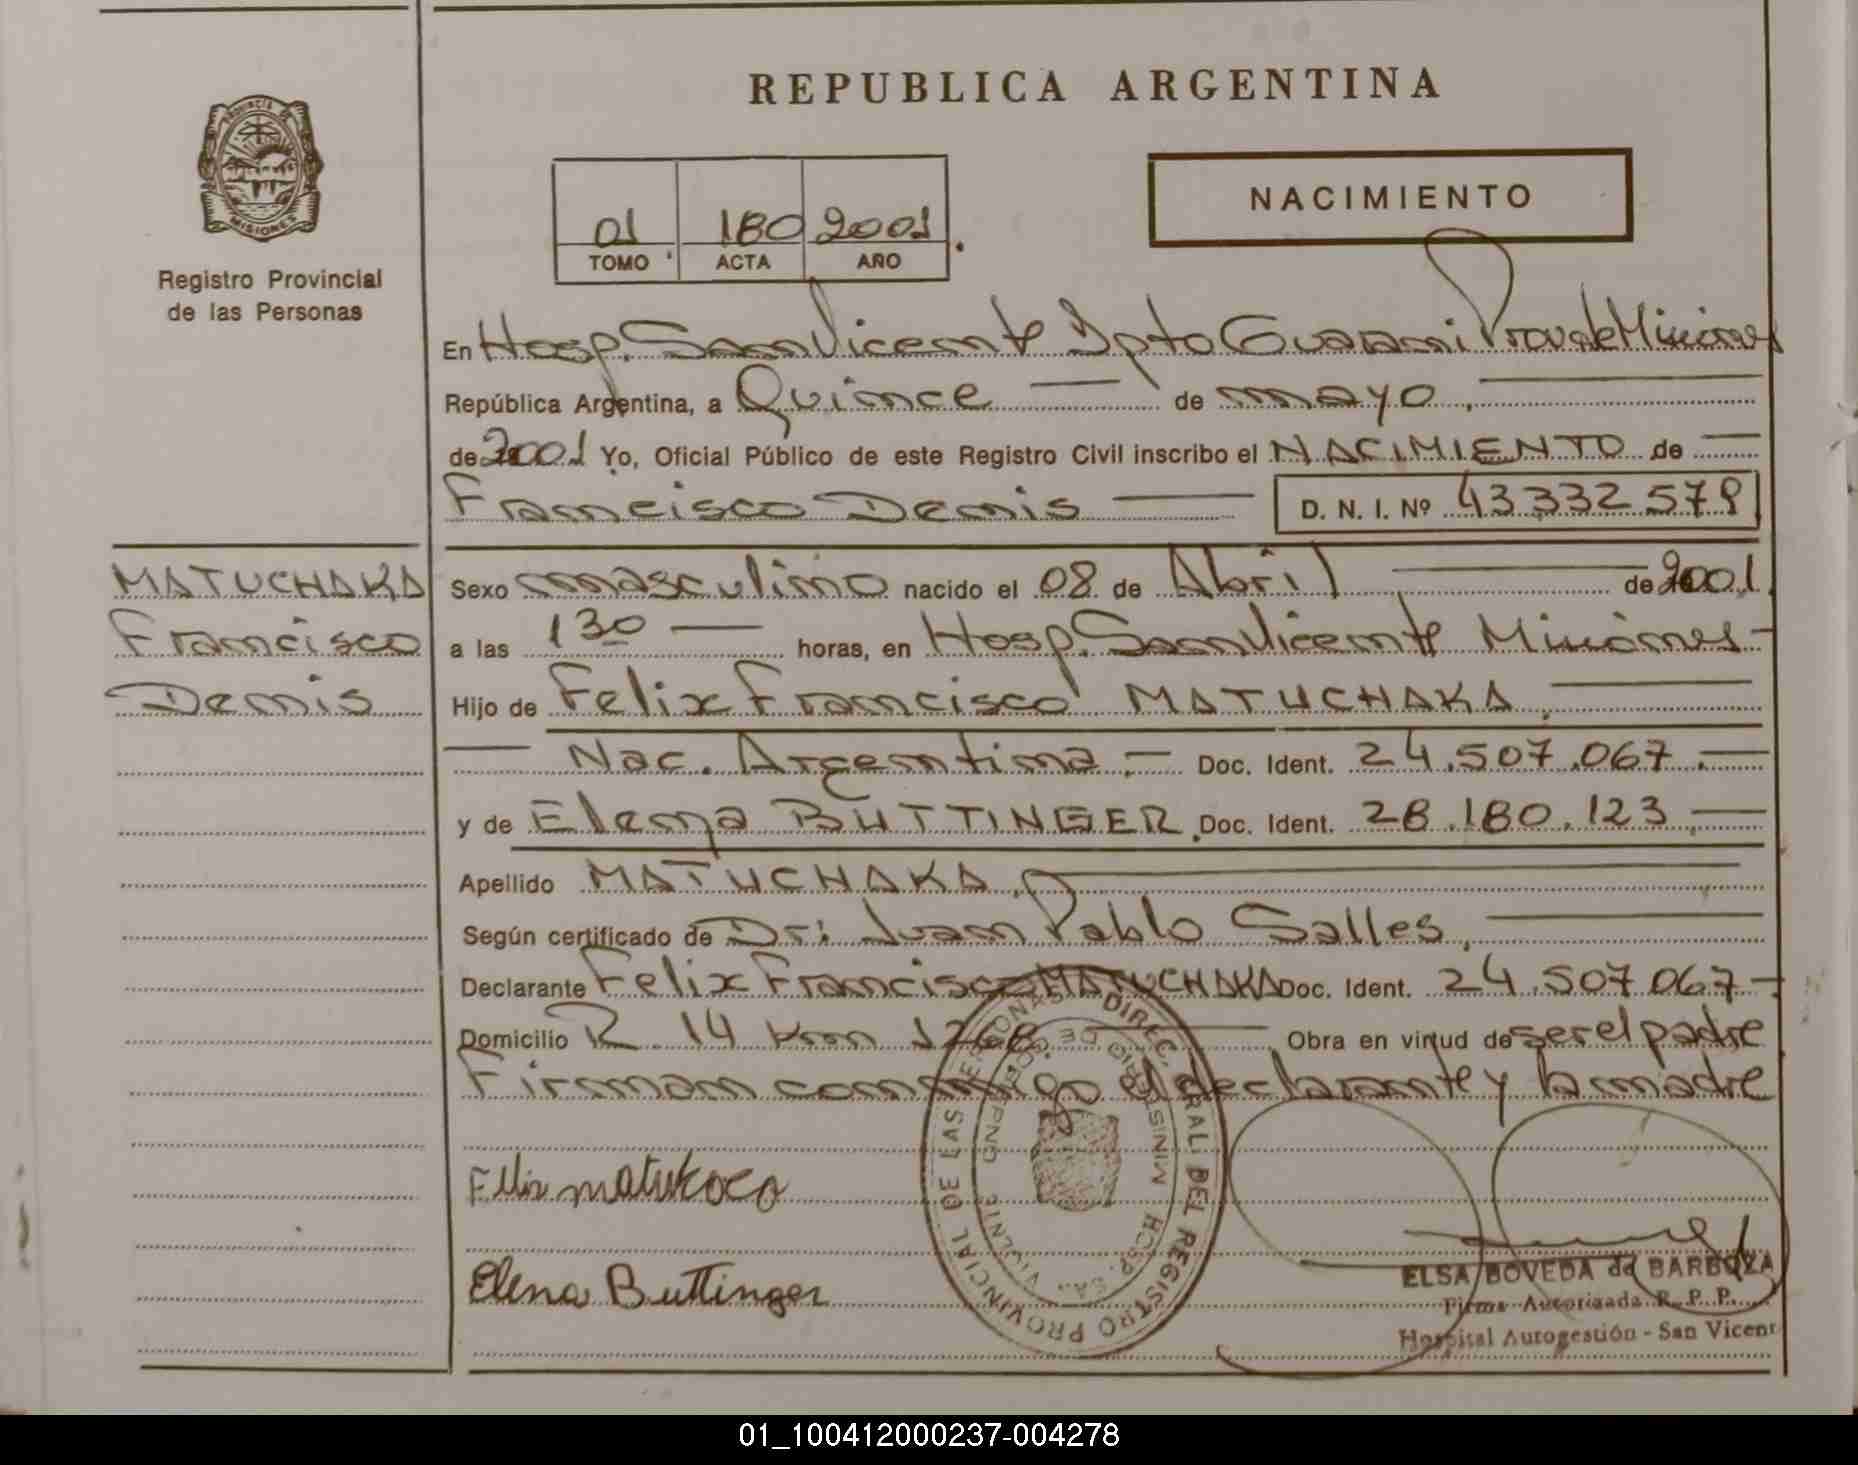 REPUBLICA ARGENTINA
PROVINCIA DE
MISIONES
Registro Provincial
de las Personas
01 180 2001
TOMO ACTA AÑO
NACIMIENTO
En Hosp. San Vicente Dpto Guarani Prov de Misiones
República Argentina, a Quince de mayo
de 2001 Yo, Oficial Público de este Registro Civil inscribo el NACIMIENTO de
Francisco Denis D. N. I. Nº 43332579
MATUCHAKA
Francisco
Denis
Sexo masculino nacido el 08 de Abril de 2001.
a las 1 30 horas, en Hosp. San Vicente Misiones
Hijo de Felix Francisco MATUCHAKA.
Nac. Argentina. Doc. Ident. 24.507.067.
y de Elena BUTTINGER. Doc. Ident. 28.180.123
Apellido MATUCHAKA.
Según certificado de Dr: Juan Pablo Salles,
Declarante Felix Francisco MATUCHAKA Doc. Ident. 24.507.067
Domicilio R. 14 Km 1268. Obra en virtud de ser el padre
Firman conmigo el declarante y la madre
DIREC. GRAL. DEL REGISTRO PROVINCIAL DE LAS PERSONAS
MINISTERIO DE GOBIERNO
HOSP. VICENTE
Elena Buttinger
ELSA BOVEDA de BARBOZA
Firma Autorizada R. P. P.
Hospital Autogestión - San Vicent
01_100412000237-004278